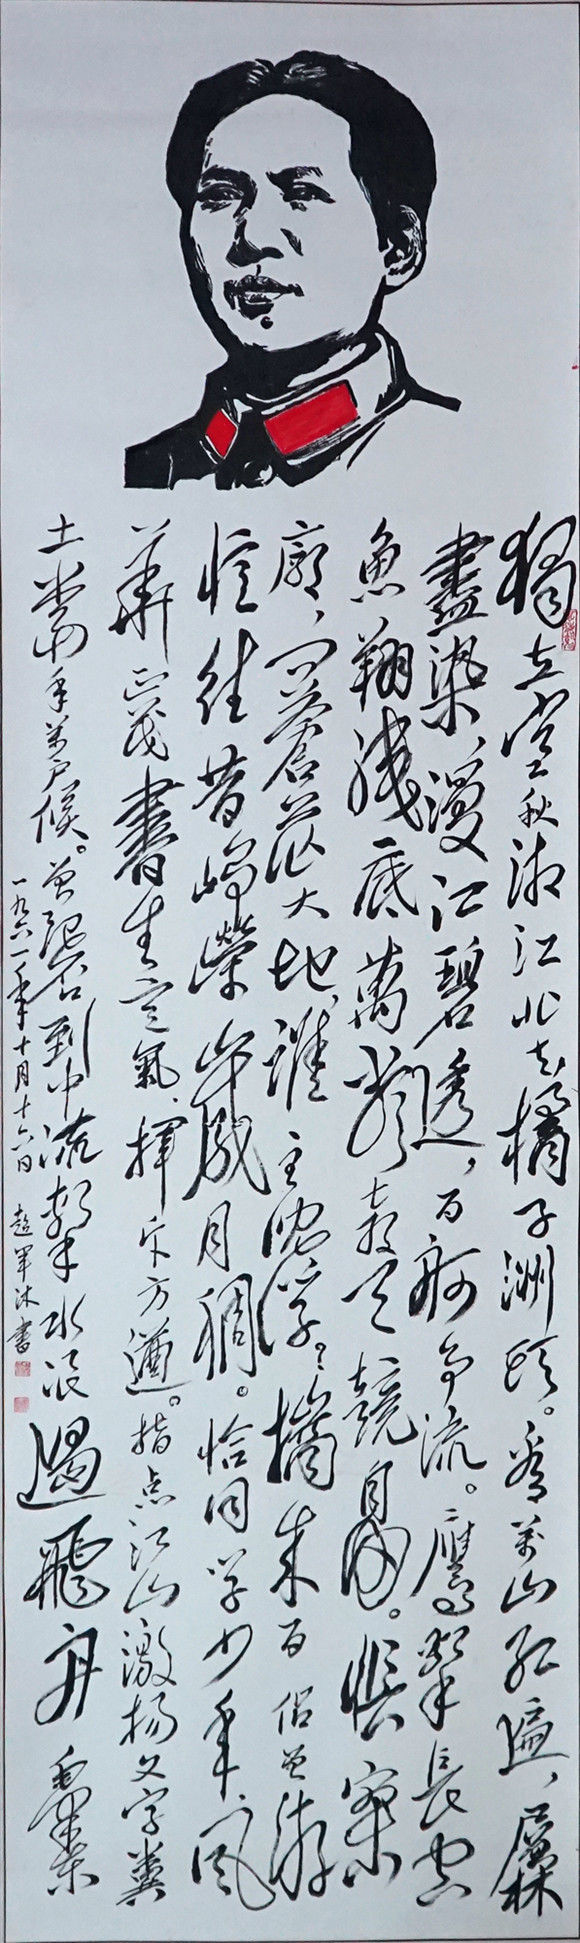 獨立寒秋湘江北去橘子洲頭。看萬山紅遍、層林
盡染、漫江碧透，百舸争流。鷹擊長空
魚翔淺底萬類霜天競自由。悵寥
廓、问蒼茫大地、誰主沈浮？攜来百侣曾游
憶往昔崢嶸歲月稠。恰同學少年風
華正茂書生意氣、揮斥方遒。指点江山激揚文字糞
土當年萬户侯。曾記否到中流擊水浪遏飛舟 毛澤東
一九六一年十月十六日 趙軍沐書